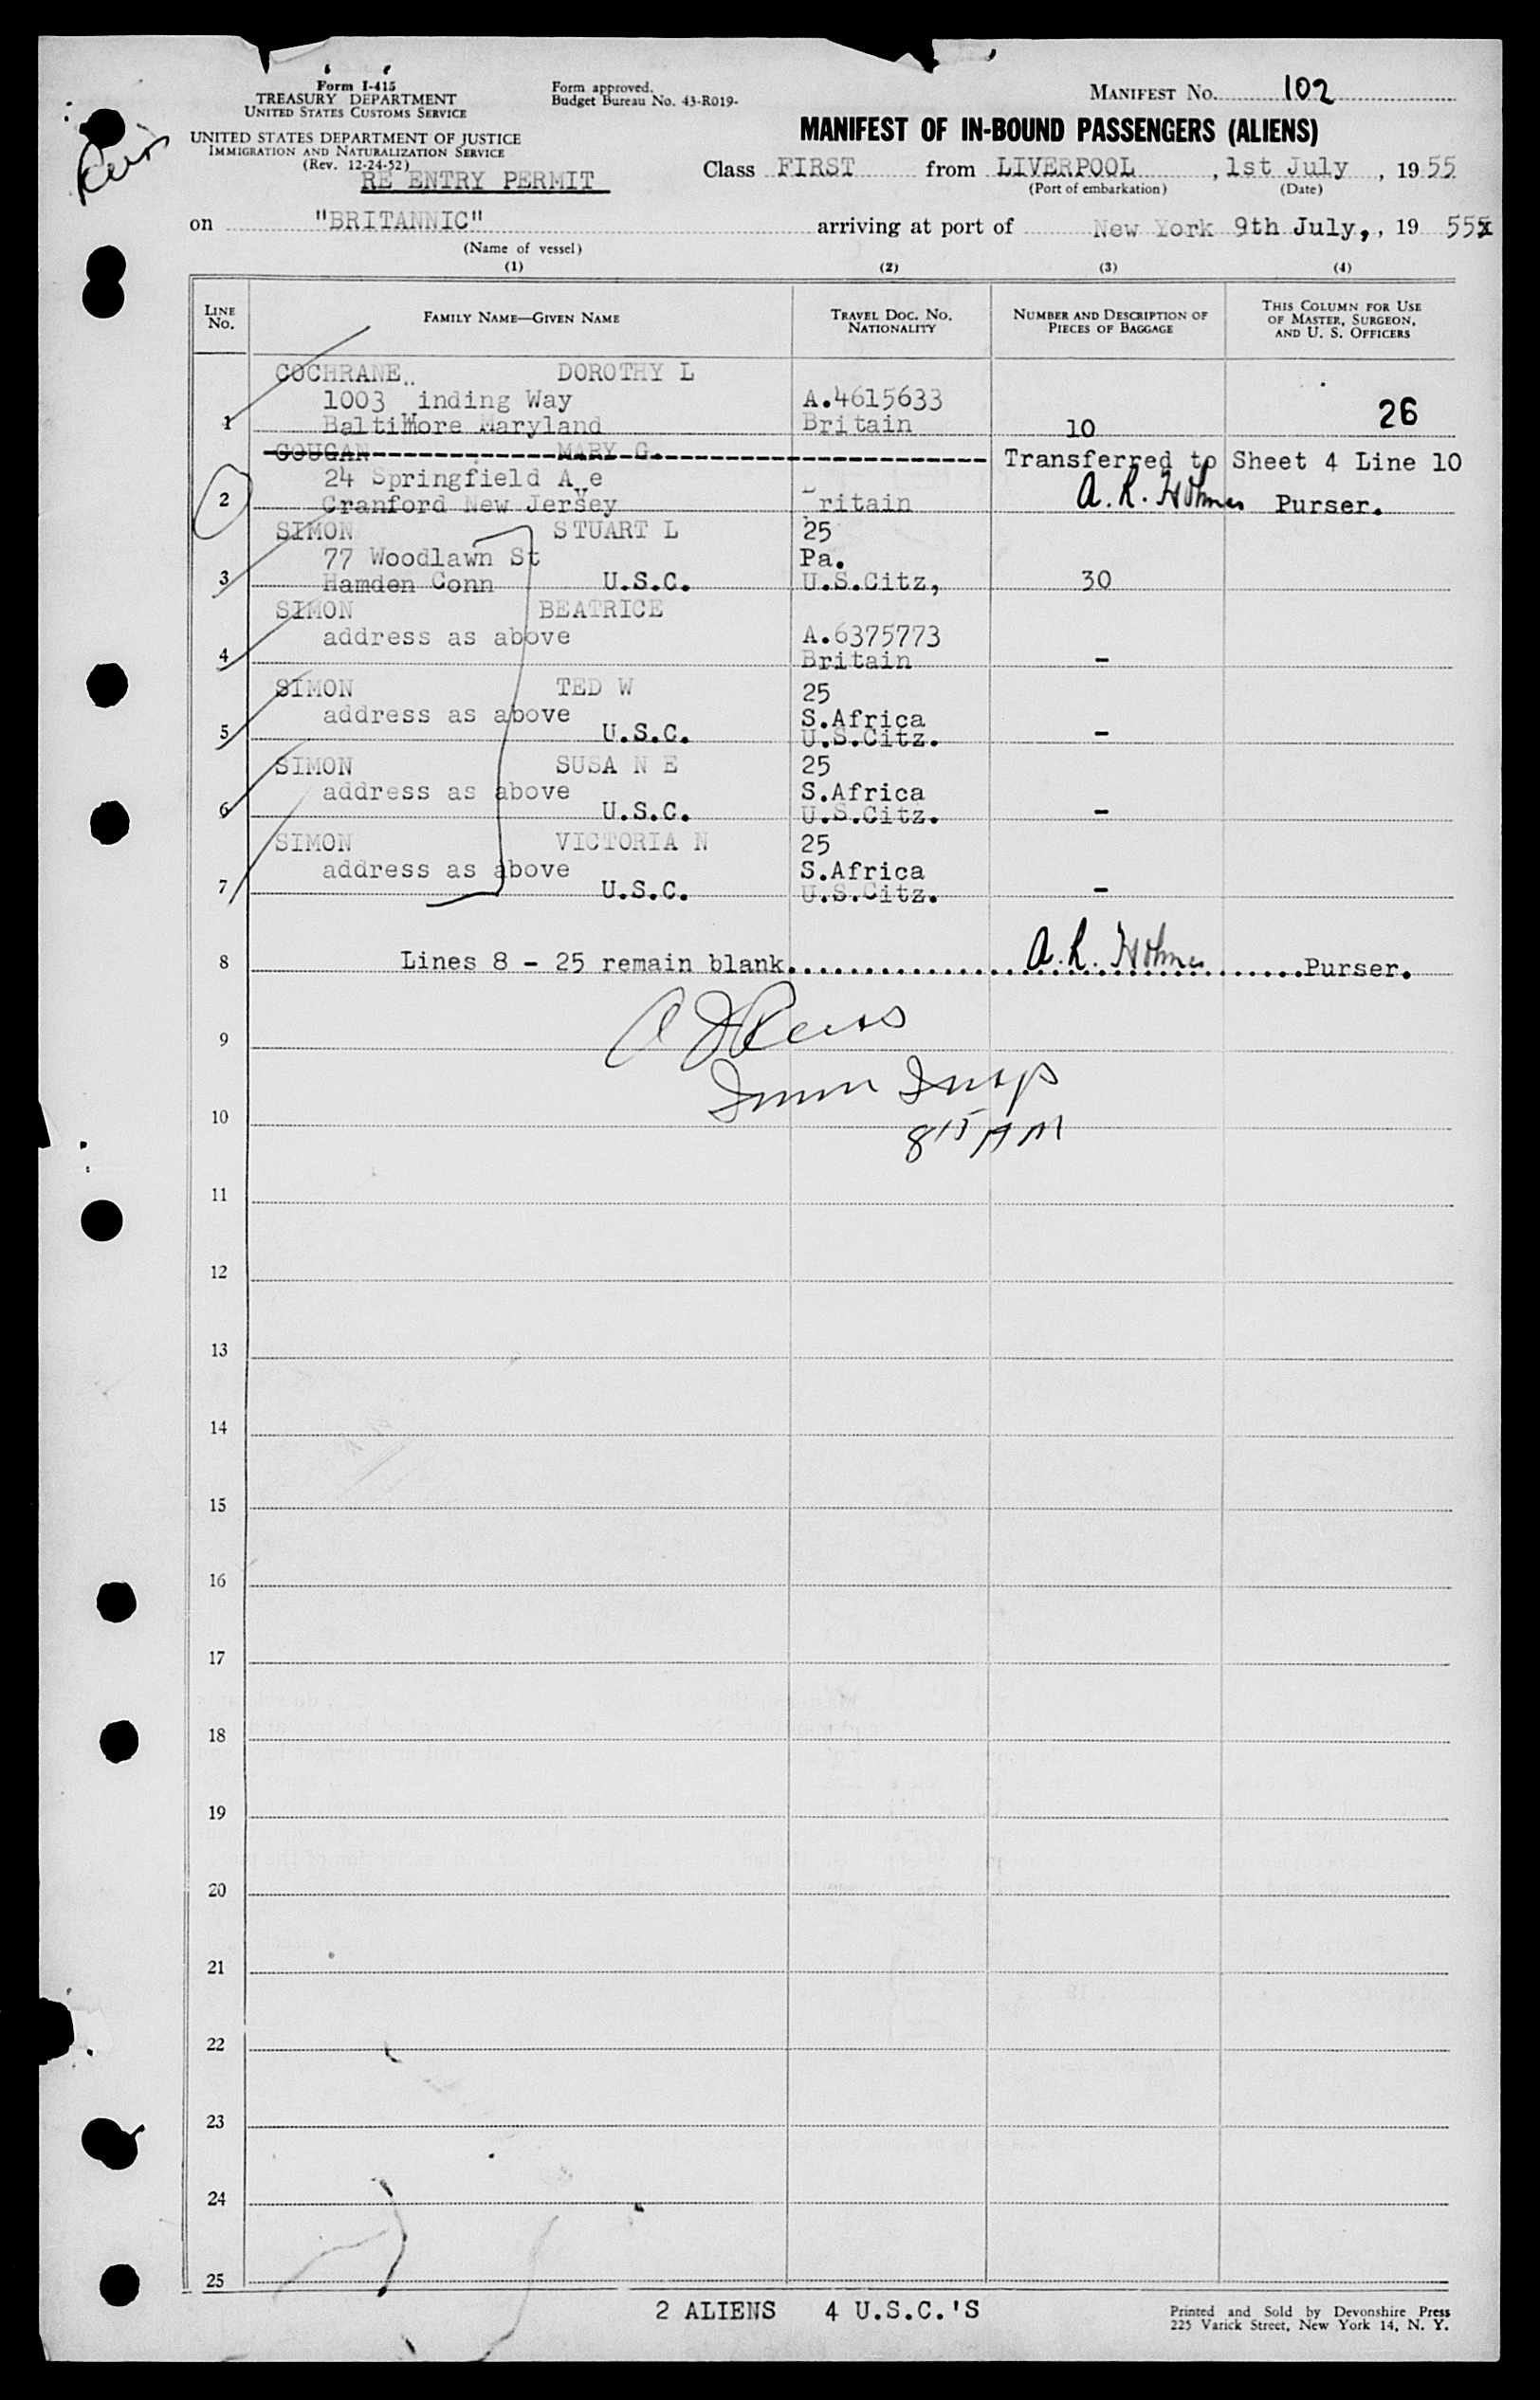 Form I-415
TREASURY DEPARTMENT
UNITED STATES CUSTOMS SERVICE
Form approved.
Budget Bureau No. 43-R019-
MANIFEST No. 102
UNITED STATES DEPARTMENT OF JUSTICE
IMMIGRATION AND NATURALIZATION SERVICE
(Rev. 12-24-52)
RE ENTRY PERMIT
MANIFEST OF IN-BOUND PASSENGERS (ALIENS)
Class FIRST from LIVERPOOL, 1st July, 19 55
(Port of embarkation) (Date)
on "BRITANNIC" arriving at port of New York 9th July,, 19 555x
(Name of vessel)
(1) (2) (3) (4)
LINE No. FAMILY NAME—GIVEN NAME TRAVEL DOC. No. NATIONALITY NUMBER AND DESCRIPTION OF PIECES OF BAGGAGE THIS COLUMN FOR USE OF MASTER, SURGEON, AND U. S. OFFICERS
COCHRANE DOROTHY L
1003 Winding Way A.4615633 26
1 Baltimore Maryland Britain 10
COUGAN MARY G. Transferred to Sheet 4 Line 10
24 Springfield Ave A. R. Holmes Purser.
2 Cranford New Jersey Britain
SIMON STUART L 25
77 Woodlawn St Pa.
3 Hamden Conn U.S.C. U.S.Citz, 30
SIMON BEATRICE
address as above A.6375773
4 Britain -
SIMON TED W 25
address as above S.Africa
5 U.S.C. U.S.Citz. -
SIMON SUSA N E 25
address as above S.Africa
6 U.S.C. U.S.Citz. -
SIMON VICTORIA N 25
address as above S.Africa
7 U.S.C. U.S.Citz. -
8 Lines 8 - 25 remain blank. A. R. Holmes Purser.
9 A J Reiss
Imm Insp
10 815 AM
11
12
13
14
15
16
17
18
19
20
21
22
23
24
25
2 ALIENS 4 U.S.C.'S
Printed and Sold by Devonshire Press
225 Varick Street, New York 14, N. Y.